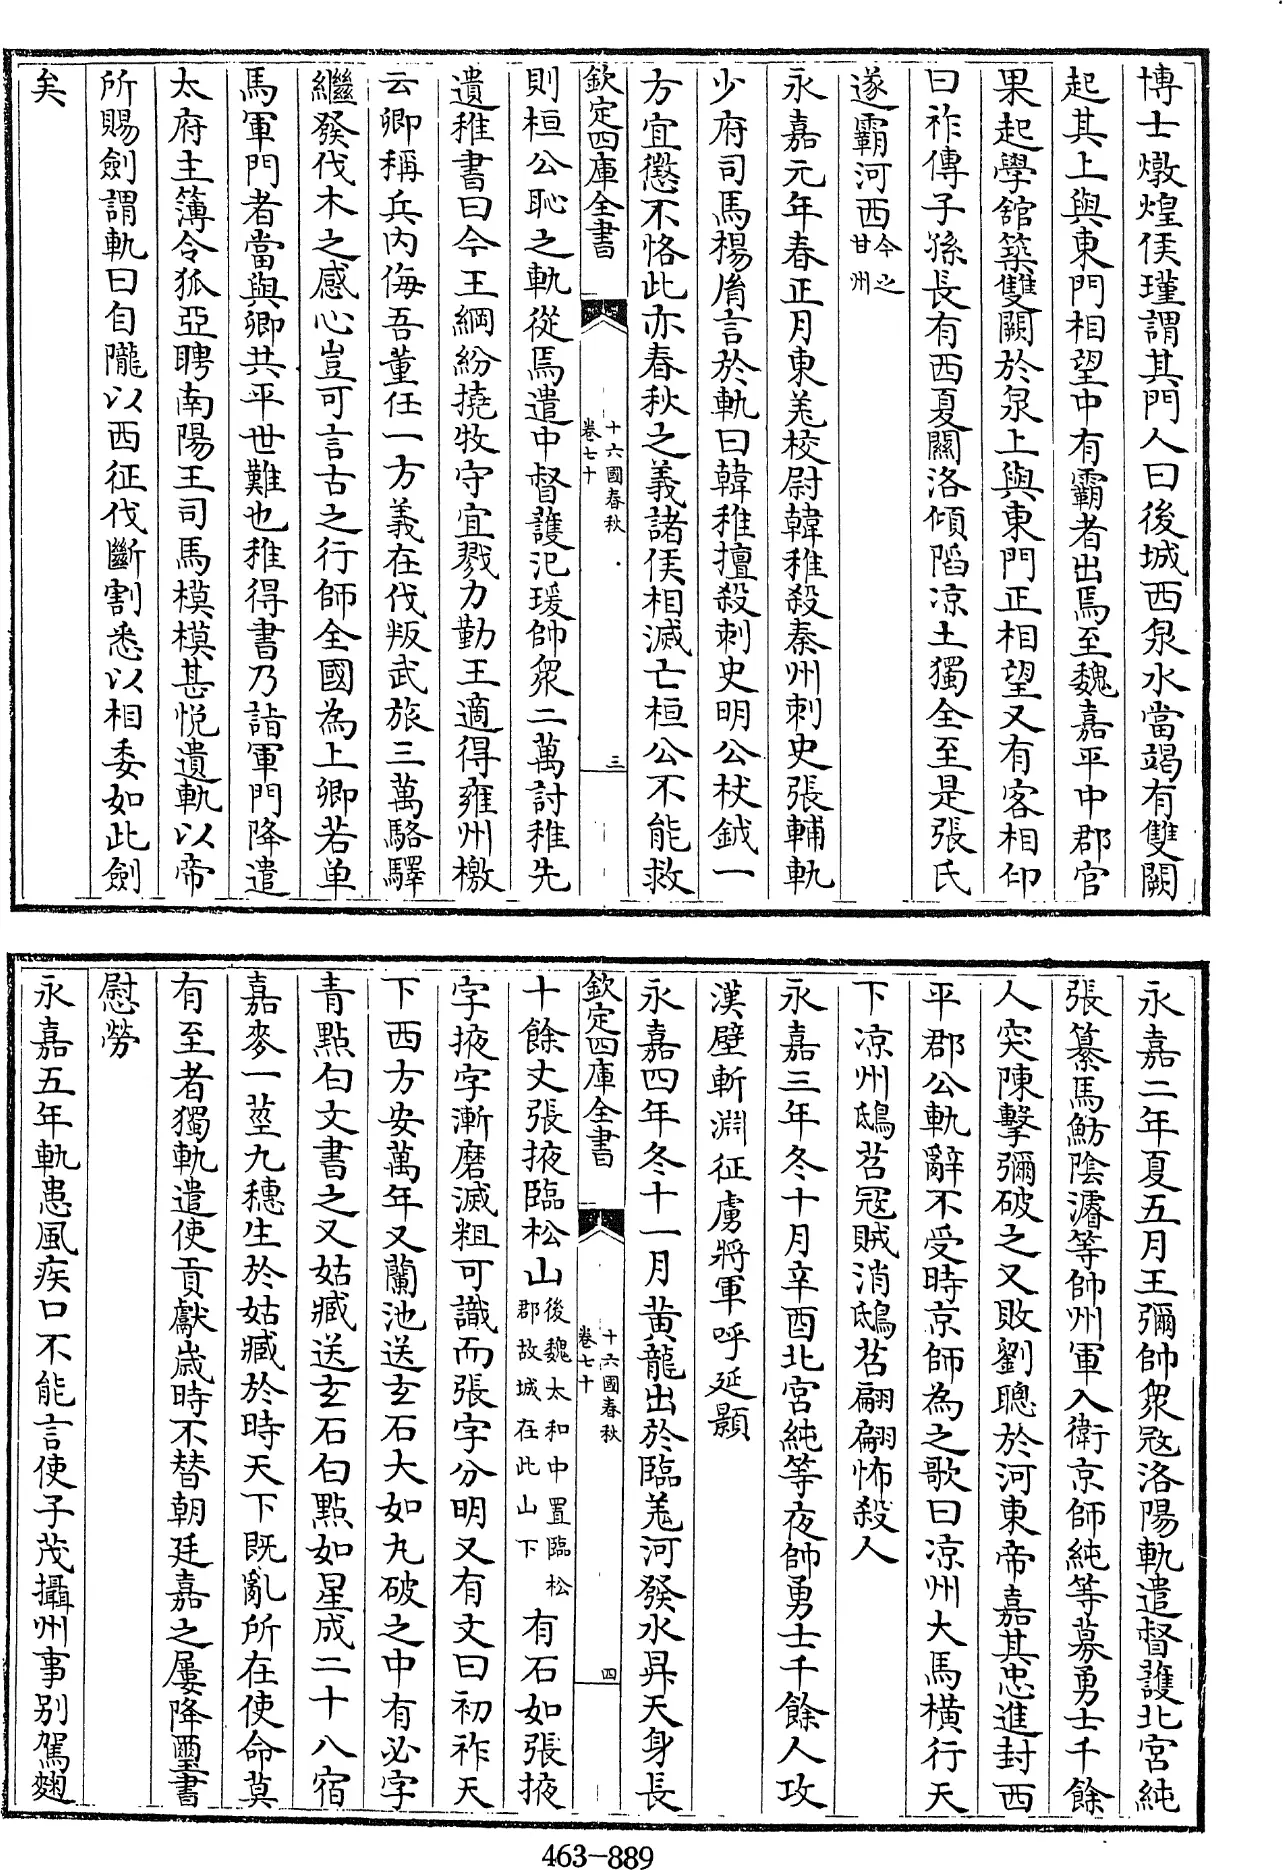 博士燉煌侯瑾謂其門人曰後城西泉水當竭有雙闕
起其上與東門相望中有霸者出焉至魏嘉平中郡官
果起學舘築雙闕於泉上與東門正相望又有客相印
曰祚傳子孫長有西夏關洛傾陷凉土獨全至是張氏
遂霸河西今之甘州
永嘉元年春正月東羌校尉韓稚殺秦州刺史張輔軌
少府司馬楊胤言於軌曰韓稚擅殺刺史明公杖鉞一
方宜懲不恪此亦春秋之義諸侯相滅亡桓公不能救
欽定四庫全書
十六國春秋
卷七十
三
則桓公恥之軌從焉遣中督護氾瑗帥衆二萬討稚先
遺稚書曰今王綱紛撓牧守宜戮力勤王適得雍州檄
云卿稱兵内侮吾董任一方義在伐叛武旅三萬駱驛
繼發伐木之感心豈可言古之行師全國為上卿若单
馬軍門者當與卿共平世難也稚得書乃詣軍門降遣
太府主簿令狐亞聘南陽王司馬模模甚悦遺軌以帝
所賜劍謂軌曰自隴以西征伐斷割悉以相委如此劍
矣
永嘉二年夏五月王彌帥衆宼洛陽軌遣督護北宮純
張纂馬魴陰濬等帥州軍入衛京師純等募勇士千餘
人突陳擊彌破之又敗劉聰於河東帝嘉其忠進封西
平郡公軌辭不受時京師為之歌曰凉州大馬橫行天
下凉州鴟苕冦賊消鴟苕翩翩怖殺人
永嘉三年冬十月辛酉北宮純等夜帥勇士千餘人攻
漢壁斬淵征虜將軍呼延顥
永嘉四年冬十一月黄龍出於臨羌河發水昇天身長
欽定四庫全書
十六國春秋
卷七十
四
十餘丈張掖臨松山後魏太和中置臨松郡故城在此山下有石如張掖
字掖字漸磨滅粗可識而張字分明又有文曰初祚天
下西方安萬年又蘭池送玄石大如丸破之中有必字
青點白文書之又姑臧送玄石白點如星成二十八宿
嘉麥一莖九穗生於姑臧於時天下既亂所在使命莫
有至者獨軌遣使貢獻歲時不替朝廷嘉之屢降璽書
慰勞
永嘉五年軌患風疾口不能言使子茂攝州事别駕麴
463-889